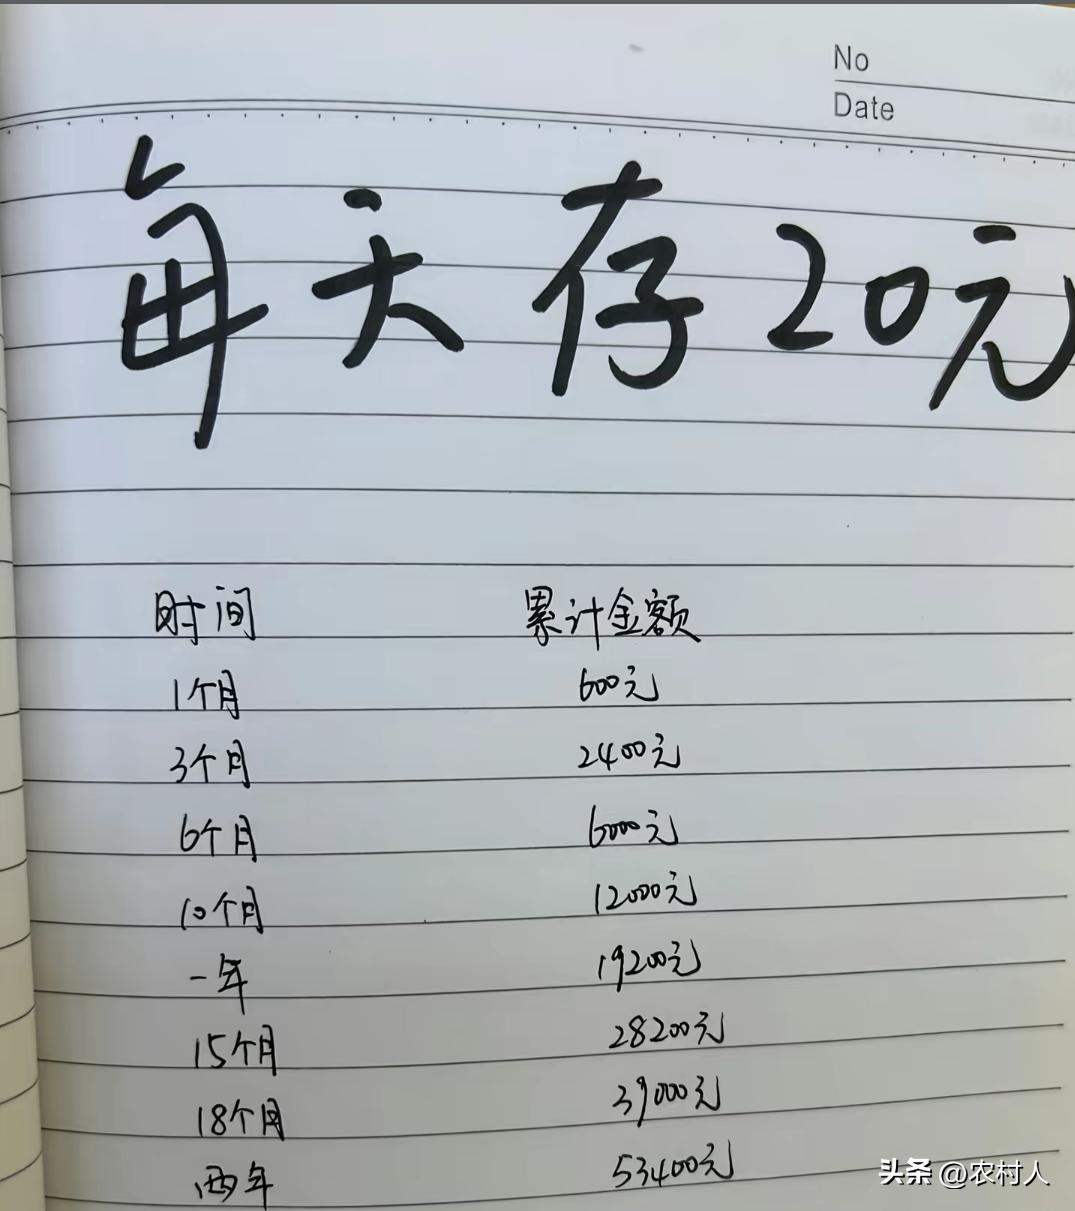 No
Date
每天存20元
时间 累计金额
1个月 600元
3个月 2400元
6个月 6000元
10个月 12000元
一年 19200元
15个月 28200元
18个月 39000元
两年 53400元
头条 @农村人